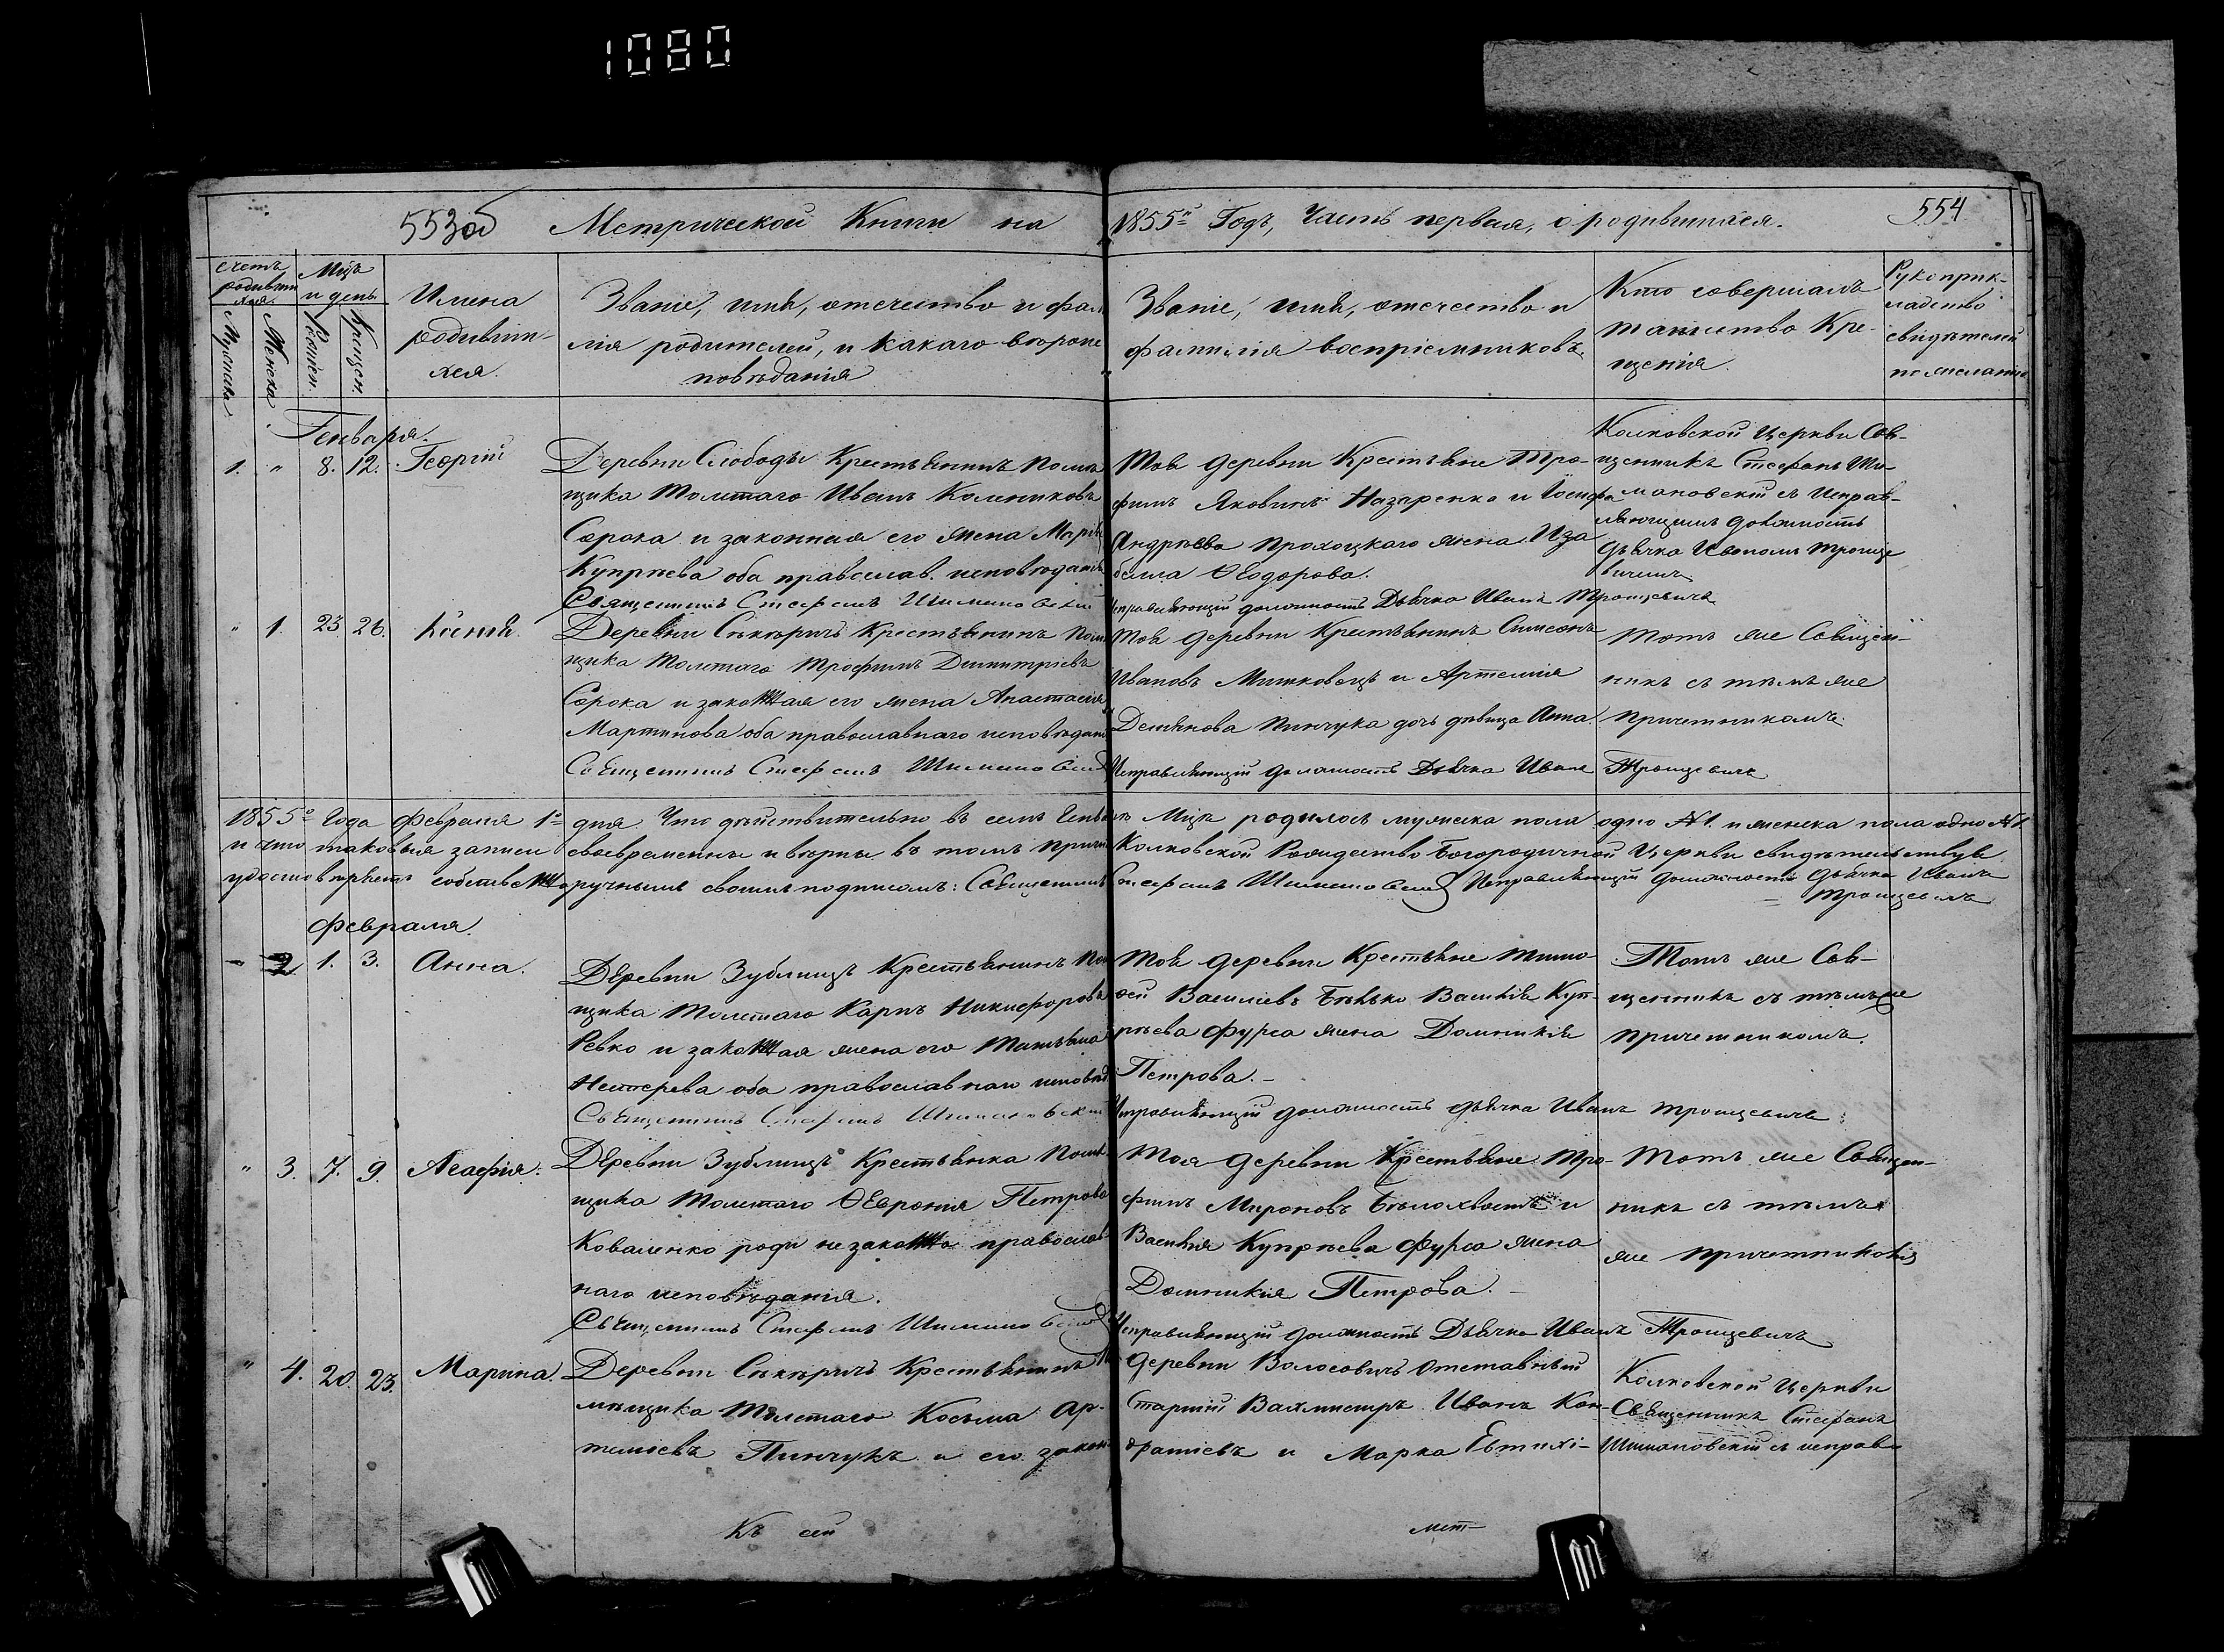 1080
553об Метрической Книги на 1855й Годъ, Часть первая, о родившихся. 554
Счетъ родивши хся.
Мужеска
Женска
Мцъ и день
Рожден.
Крещен.
Имена
родивши-
хся.
Званіе, имя, отечество и фами
лія родителей, и какаго вѣроис
повѣданія
Званіе, имя, отечество и
фамилія воспріемниковъ
Кто совершалъ
таинство Кре-
щенія.
Рукоприк-
ладство
свидѣтелей
по желанію
Генваря.
1. " 8. 12. Георгій
Деревни Слободы Крестьянинъ помѣ
щика Толстаго Иванъ Калениковъ
Сорока и законная его жена Марія
Купріева оба православ. исповѣданія
Священникъ Стефанъ Шимановскій
Тоя деревни Крестьяне Тро-
фимъ Яковинъ Назаренко и Іосифа
Андрѣева Прохоцкаго жена Иза
белла Ѳеодорова.
Исправляющій должность Дьячка Иванъ Троицевичъ
Колковской Церкви Свя-
щенникъ Стефанъ Ши-
мановскій съ исправ-
ляющимъ должность
дьячка Иваномъ Троице
вичемъ
" 1. 23 26. Ксенія.
Деревни Секеричъ Крестьянинъ помѣ
щика Толстаго Трофимъ Димитріевъ
Сорока и законная его жена Анастасія
Мартинова оба православнаго исповѣдан
Священникъ Стефанъ Шимановскій
Тоя деревни Крестьянинъ Симеонъ
Ивановъ Митковецъ и Артемія
Демянова Пинчука дочь дѣвица Анна
Исправляющій должность Дьячка Иванъ Троицевичъ
Тотъ же Священ-
никъ съ тѣмъ же
причетникомъ.
1855го Года Февраля 1го дня. Что дѣйствительно въ семъ Генварѣ Мцѣ родилось мужеска пола одно №1. и женска пола одно №1
и что таковыя записи своевременны и вѣрны въ томъ причтъ Колковской Рождество Богородичной Церкви свидѣтельствуя
удостовѣряетъ собственноручнымъ своимъ подписомъ: Священникъ Стефанъ Шимановскій Исправляющій должность Дьячка Иванъ
Троицевичъ
Февраля.
- 2 1. 3. Анна.
Деревни Зублищъ Крестьянинъ По
щика Толстаго Карпъ Никифоровъ
Ревко и законная жена его Татьяна
Нестерева оба православнаго исповѣд
Священникъ Стефанъ Шимановскій
Тоя деревни Крестьяне Тимо
ѳей Василіевъ Бѣлько Василія Куп-
рѣева Фурса жена Домникія
Петрова.-
Исправляющій должность дьячка Иванъ Троицевичъ
Тотъ же Свя-
щенникъ съ тѣмъ же
причетникомъ.
" 3. 7. 9. Агафія.
Деревни Зублищъ Крестьянка Помѣ-
щика Толстаго Ѳевронія Петрова
Коваленко роди незаконно православ-
наго исповѣданія.
Священникъ Стефанъ Шимановскій
Тоя деревни Крестьяне Тро-
фимъ Мироновъ Бѣлохвостъ и
Василія Купрѣева Фурса жена
Домникія Петрова.-
Исправляющій должность Дьячка Иванъ Троицевичъ
Тотъ же Священ-
никъ съ тѣмъ
же причетникомъ
" 4. 20. 23. Марина.
Деревни Секеричъ Крестьянинъ По
мѣщика Толстаго Косьма Ар-
темьевъ Пинчукъ и его закон
Деревни Волосовичъ отставный
Старшій Вахмистръ Иванъ Кон-
дратіевъ и Марка Евтихі-
Колковской Церкви
Священникъ Стефанъ
Шимановскій съ исправ
Къ сей мет-